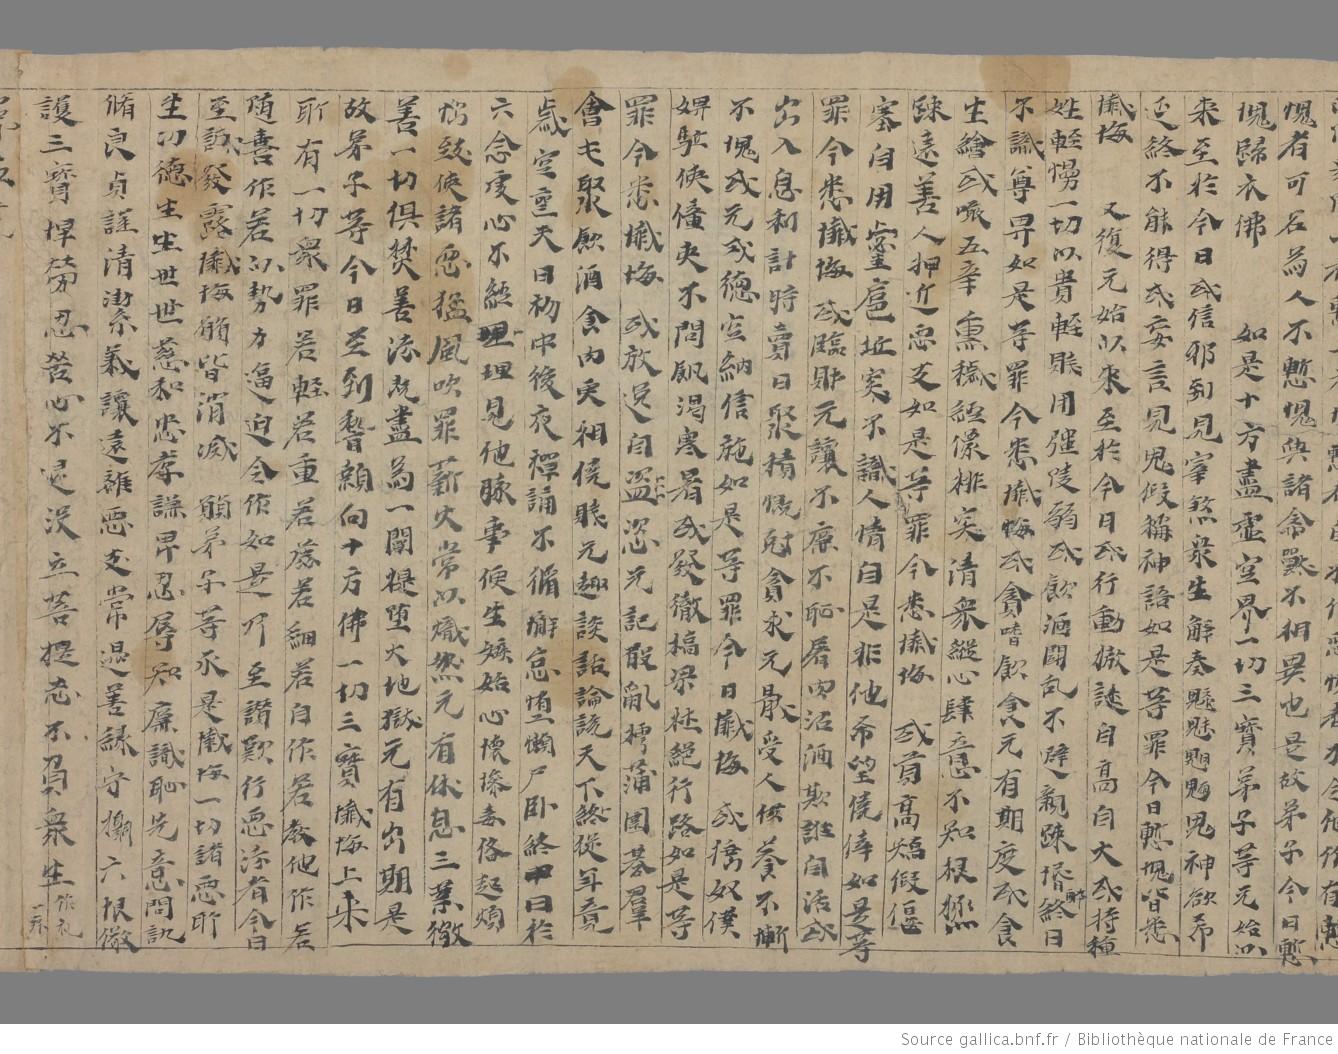 愧者可名為人不慙愧與諸禽獸不相異也是故弟子今日慙
愧歸依佛　如是十方盡虛空界一切三寶弟子等无始以
來至於今日或信邪到見宰煞衆生解奏魘魅魍魎鬼神欲希
延終不能得或妄言見鬼假稱神語如是等罪今日慙愧皆悉
懺悔　又復无始以來至於今日或行動慠誕自高自大或恃種
姓輕慢一切以貴輕賤用強陵弱或飲酒鬪乱不避親踈惛醉終日
不識尊卑如是等罪今悉懺悔或貪嗜飲食无有期度或食
生鱠或噉五辛熏穢經像排突清衆縱心肆意不知根極
踈遠善人押近惡友如是等罪今悉懺悔　或貢高矯假偃
蹇自用　　　突不識人情自是非他希望僥倖如是等
罪今悉懺悔或臨財无讓不廉不恥屠肉沽酒欺誑自活或
出入息利計時賣日聚積慳剋貪求无猒受人供養不慚
不愧或无戒德空納信施如是等罪今日懺悔或搒奴僕
婢駈使僮　不問飢渴寒暑或發徹橋梁杜絕行路如是等
罪今悉懺悔　或放逸自恣　无記散亂摴蒲圍棊羣
會屯聚飲酒食肉　相僥　无趣談話論說天下終從年竟
歲空　天日初中後夜禪誦不脩懈怠墮懶尸臥終日於
六念處心不經理理見他　事便生嫉　心懷慘毒俻起煩
惱致使諸惡猛風吹罪薪火常以熾然无有休息三業微
善一切俱焚善法既盡為一闡提墮大地獄无有出期是
故弟子等今日至到稽顙向十方佛一切三寶懺悔上來
所有一切衆罪若輕若重若麁若細若自作若教他作若
隨喜作若以勢力逼迫令作如是乃至讚歎行惡法者今日
至誠發露懺悔願皆消滅　願弟子等承是懺悔一切諸惡所
生功德生生世世慈和忠孝謙卑忍辱知廉識恥先意問訊
脩良貞謹清潔義讓遠離惡友常遇善緣守攝六根　
護三寶捍勞忍苦心不退沒立菩提志不負衆生作礼一拜